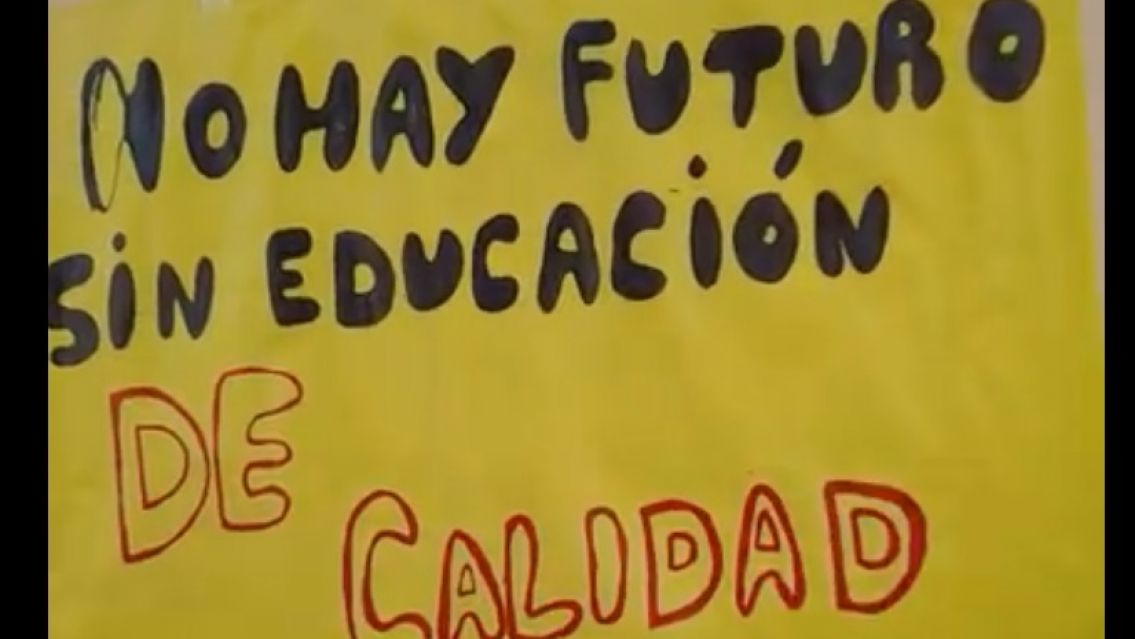 NO HAY FUTURO
SiN EDUCACiÓN
DE
CALIDAD